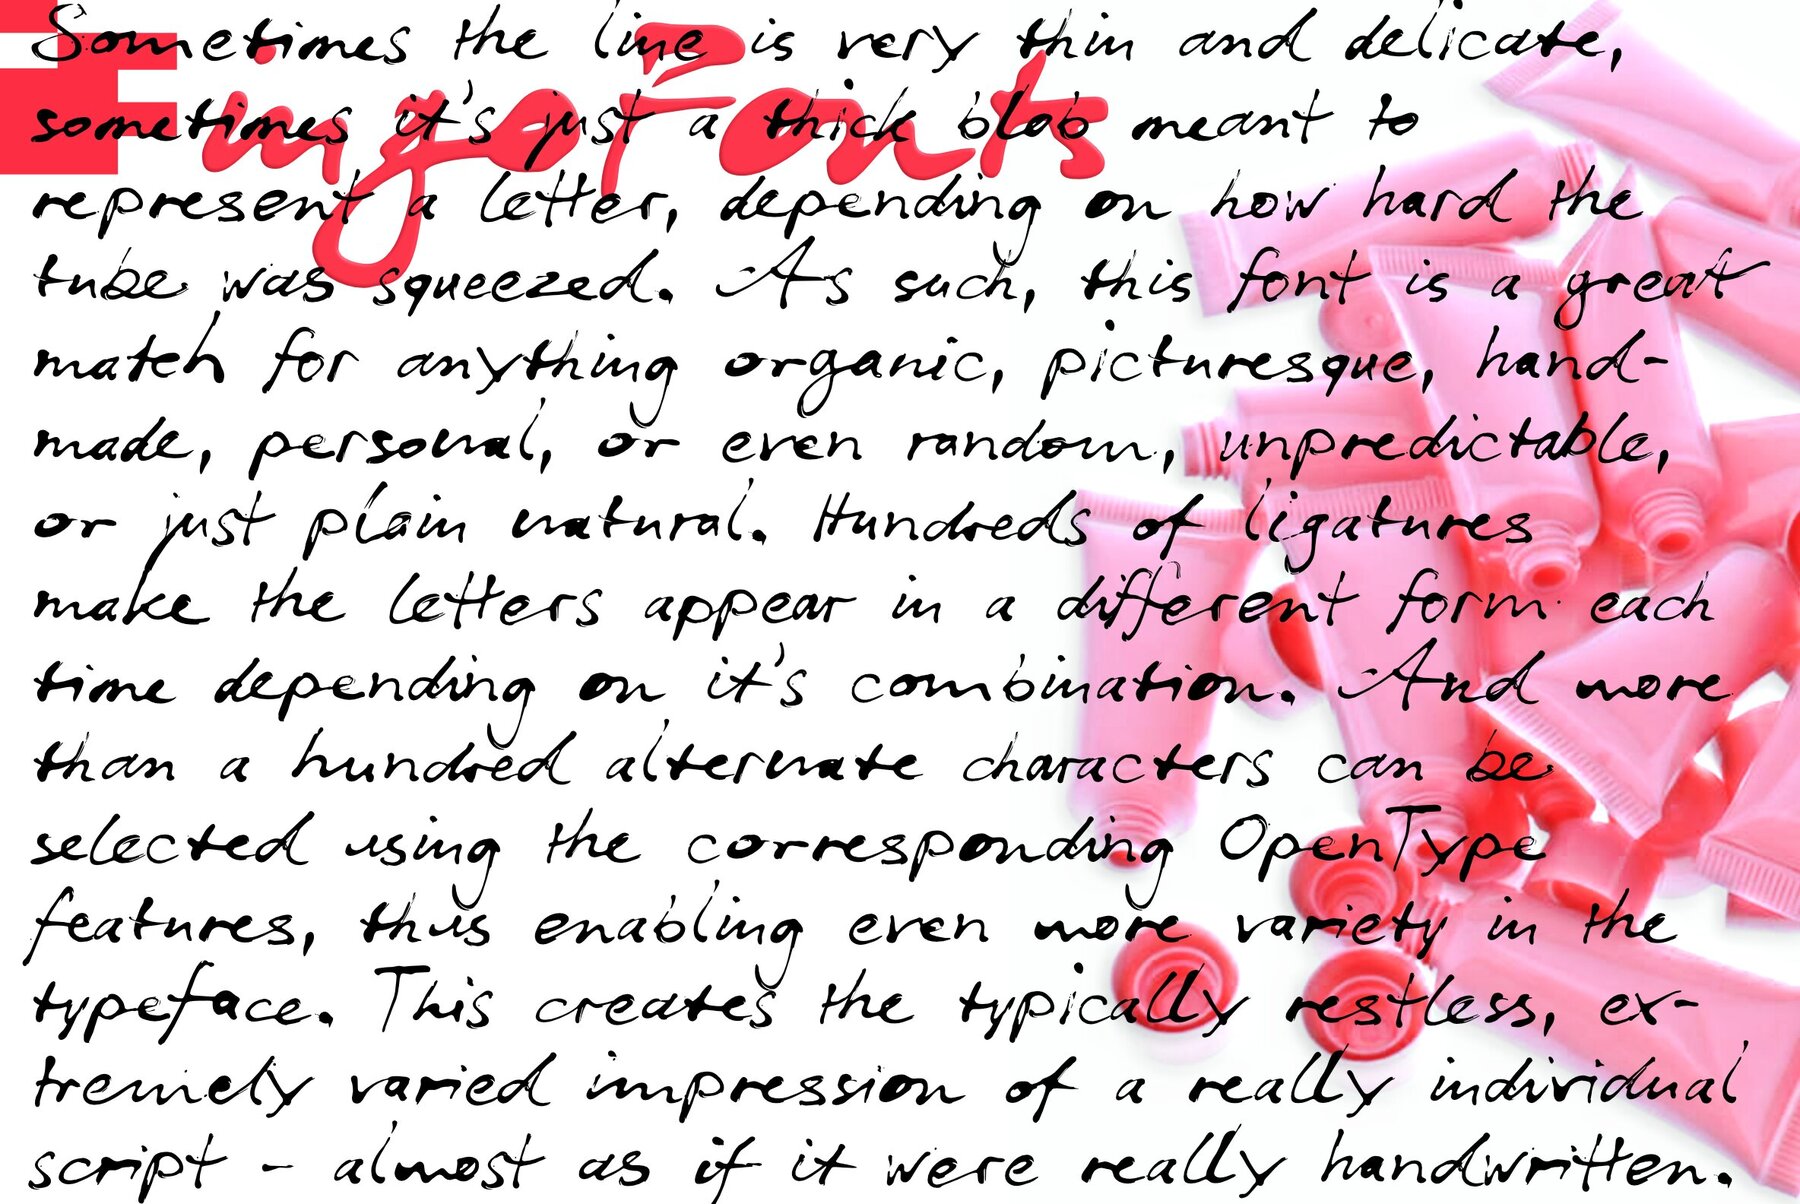 FingoFonts
Sometimes the line is very thin and delicate,
sometimes it's just a thick blob meant to
represent a letter, depending on how hard the
tube was squeezed. As such, this font is a great
match for anything organic, picturesque, hand-
made, personal, or even random, unpredictable,
or just plain natural. Hundreds of ligatures
make the letters appear in a different form each
time depending on it's combination. And more
than a hundred alternate characters can be
selected using the corresponding OpenType
features, thus enabling even more variety in the
typeface. This creates the typically restless, ex-
tremely varied impression of a really individual
script - almost as if it were really handwritten.